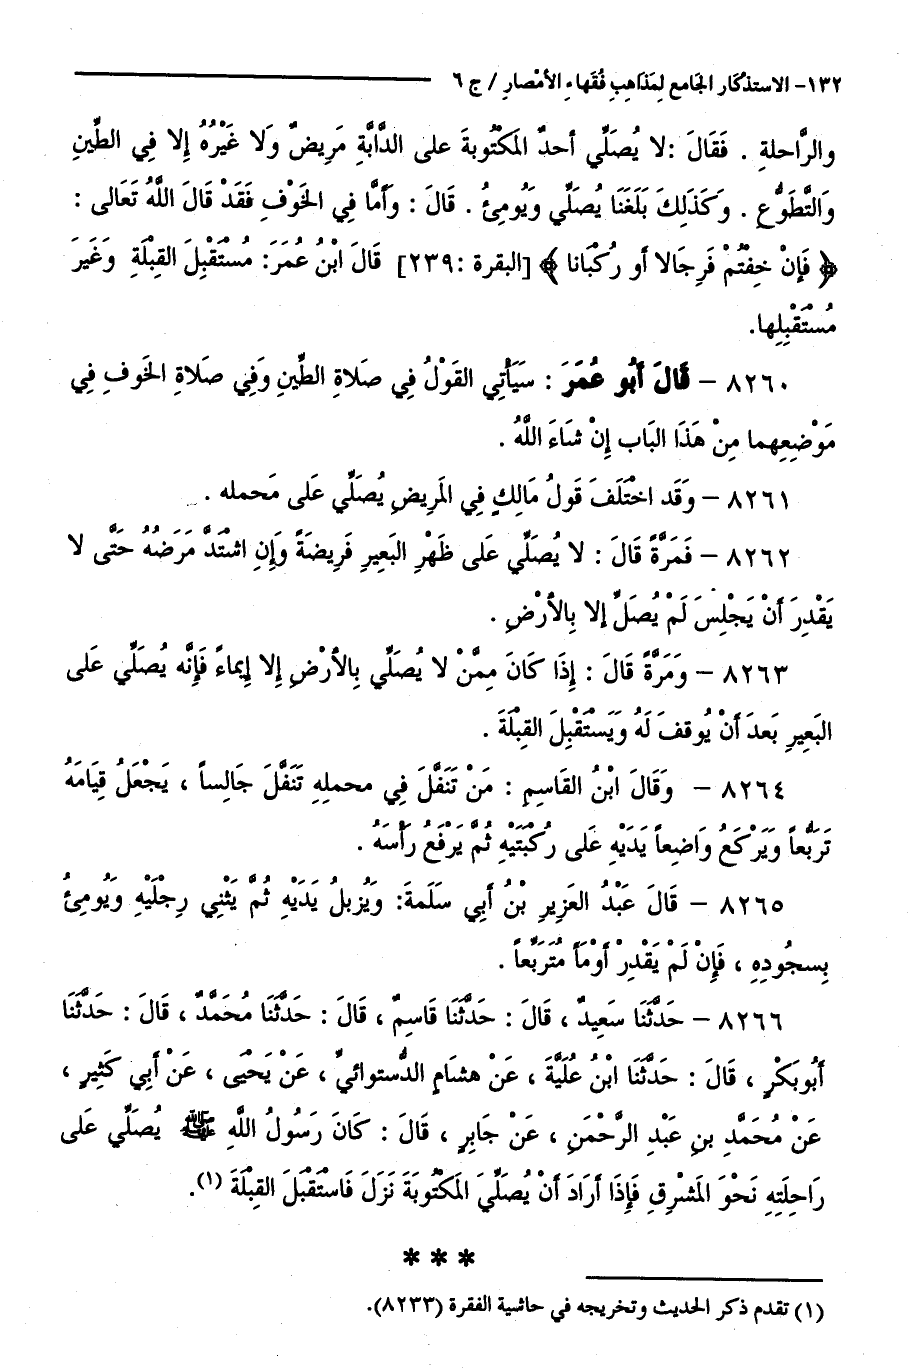 ١٣٢- الاستذكار الجامع لِمَذاهِبِ فُقَهاءِ الأمْصارِ / ج ٦
والرَّاحلةِ . فَقَالَ :لا يُصَلِّي أحدٌ المَكْتُوبةَ على الدَّابَّةِ مَرِيضٌ وَلا غَيْرُهُ إلا فِي الطِّينِ
وَالتَّطَوُّعِ . وَكَذَلِكَ بَلَغَنَا يُصَلِّي وَيُومِئُ . قَالَ : وَأَمَّا فِي الخَوْفِ فَقَدْ قَالَ اللَّهُ تَعَالى :
﴿ فَإنْ خِفْتُمْ فَرِجَالا أو رُكْبَانا ﴾ [البقرة :٢٣٩] قَالَ ابْنُ عُمَرَ: مُسْتَقْبِلَ القِبْلَةِ وَغَيرَ
مُسْتَقْبِلِها.
٨٢٦٠ – قَالَ أبُو عُمَرَ : سَيَأْتِي القَوْلُ فِي صَلاةِ الطِّينِ وَفِي صَلاةِ الخَوفِ فِي
مَوْضِعِهما مِنْ هَذَا البَاب إنْ شاءَ اللَّهُ .
٨٢٦١ – وَقَد اخْتَلَفَ قَولُ مَالِكٍ فِي المَرِيضِ يُصَلِّي عَلى مَحمله .
٨٢٦٢ – فَمَرَّةً قَالَ : لا يُصَلِّي عَلى ظَهْرِ البَعِيرِ فَرِيضَةً وَإِنِ اشْتَدَّ مَرَضُهُ حَتَّى لا
يَقْدِرَ أنْ يَجْلِسَ لَمْ يُصَلِّ إلا بِالأرْضِ .
٨٢٦٣ – وَمَرَّةً قَالَ : إِذَا كَانَ مِمَّنْ لا يُصَلِّي بِالأرْضِ إلا إيماءً فَإِنَّه يُصَلِّي عَلى
البَعِيرِ بَعدَ أنْ يُوقفَ لَهُ وَيَسْتَقْبِلَ القِبْلَةَ .
٨٢٦٤ – وَقَالَ ابْنُ القَاسِمِ : مَنْ تَنَفَّلَ فِي محملِهِ تَنَفَّلَ جَالِساً ، يَجْعَلُ قِيَامَهُ
تَرَبُّعاً وَيَرْكَعُ وَاضِعاً يَدَيْهِ عَلى رُكْبَتَيْهِ ثُمَّ يَرْفَعُ رَأْسَهُ .
٨٢٦٥ – قَالَ عَبْدُ العَزِيزِ بْنُ أَبِي سَلَمَةَ: وَيُزِيلُ يَدَيْهِ ثُمَّ يَثْنِي رِجْلَيْهِ وَيُومِئُ
بِسجُودِهِ ، فَإِنْ لَمْ يَقْدِرْ أَوْمَأَ مُتَرَبِّعاً .
٨٢٦٦ – حَدَّثَنَا سَعِيدٌ ، قَالَ : حَدَّثَنَا قَاسِمٌ ، قَالَ : حَدَّثَنَا مُحَمَّدٌ ، قَالَ : حَدَّثَنَا
أَبُوبَكْرٍ ، قَالَ : حَدَّثَنَا ابْنُ عُلَيَّةَ ، عَنْ هشَامٍ الدُّستوائيِّ ، عَنْ يَحْيَى ، عَنْ أَبِي كَثِيرٍ ،
عَنْ مُحَمَّدِ بنِ عَبْدِ الرَّحْمَنِ ، عَنْ جَابِرٍ ، قَالَ : كَانَ رَسُولُ اللَّهِ ﷺ يُصَلِّي عَلى
رَاحِلَتِهِ نَحْوَ المَشْرِقِ فَإِذَا أرَادَ أنْ يُصَلِّيَ المَكْتُوبَةَ نَزَلَ فَاسْتَقْبَلَ القِبْلَةَ (١).
* * *
(١) تقدم ذكر الحديث وتخريجه في حاشية الفقرة (٨٢٣٣).